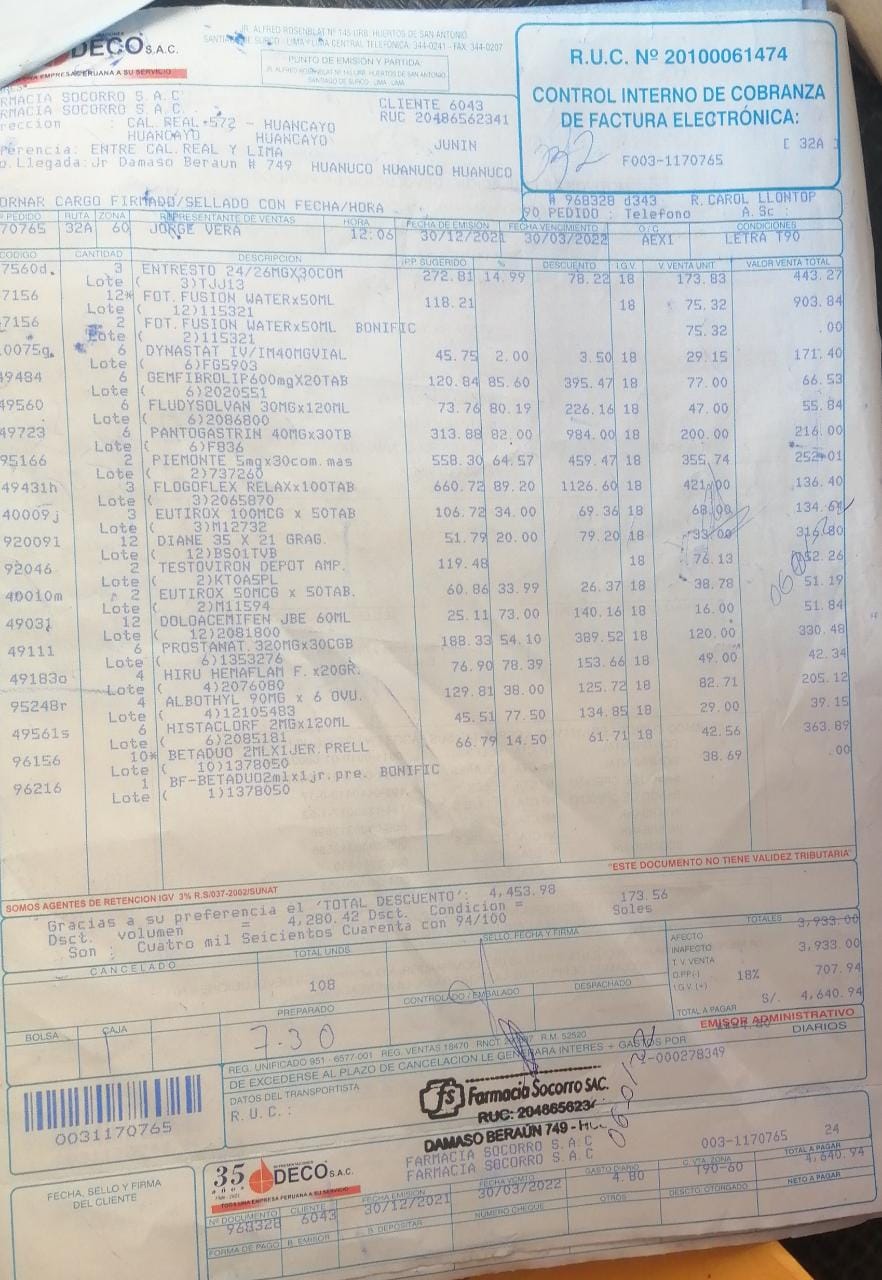 JR. ALFRED ROSENBLAT Nº 145 URB. HUERTOS DE SAN ANTONIO
SANTIAGO DE SURCO - LIMA Y LIMA CENTRAL TELEFÓNICA: 344-0241 - FAX: 344-0207
DECO S.A.C.
EMPRESA PERUANA A SU SERVICIO
PUNTO DE EMISIÓN Y PARTIDA:
JR. ALFRED ROSENBLAT Nº 145 URB. HUERTOS DE SAN ANTONIO
SANTIAGO DE SURCO - LIMA - LIMA
R.U.C. Nº 20100061474
CONTROL INTERNO DE COBRANZA
DE FACTURA ELECTRÓNICA:
[ 32A ]
F003-1170765
332
RMACIA SOCORRO S.A.C
RMACIA SOCORRO S.A.C.
CLIENTE 6043
RUC 20486562341
reccion : CAL. REAL 572 - HUANCAYO
HUANCAYO HUANCAYO JUNIN
erencia: ENTRE CAL.REAL Y LIMA
.Llegada: Jr Damaso Beraun # 749 HUANUCO HUANUCO HUANUCO
ORNAR CARGO FIRMADO/SELLADO CON FECHA/HORA
# 968328 d343 R.CAROL LLONTOP
90 PEDIDO : Telefono A.Sc :
PEDIDO RUTA ZONA REPRESENTANTE DE VENTAS HORA FECHA DE EMISIÓN FECHA VENCIMIENTO O/C CONDICIONES
70765 32A 60 JORGE VERA 12:06 30/12/2021 30/03/2022 AEX1 LETRA T90
CODIGO CANTIDAD DESCRIPCION P.P. SUGERIDO % DESCUENTO I.G.V. V.VENTA UNIT. VALOR VENTA TOTAL
7560d. 3 ENTRESTO 24/26MGX30COM 272.81 14.99 78.22 18 173.83 443.27
Lote ( 3)TJJ13
7156 12* FOT.FUSION WATERx50ML 118.21 18 75.32 903.84
Lote ( 12)115321
7156 2 FOT.FUSION WATERx50ML BONIFIC 75.32 .00
Lote ( 2)115321
0075g. 6 DYNASTAT IV/IM40MGVIAL 45.75 2.00 3.50 18 29.15 171.40
Lote ( 6)FG5903
49484 6 GEMFIBROLIP600mgX20TAB 120.84 85.60 395.47 18 77.00 66.53
Lote ( 6)2020551
49560 6 FLUDYSOLVAN 30MGx120ML 73.76 80.19 226.16 18 47.00 55.84
Lote ( 6)2086800
49723 6 PANTOGASTRIN 40MGx30TB 313.88 82.00 984.00 18 200.00 216.00
Lote ( 6)F836
95166 2 PIEMONTE 5mgx30com.mas 558.30 64.57 459.47 18 355.74 252.01
Lote ( 2)737260
49431h 3 FLOGOFLEX RELAXx100TAB 660.72 89.20 1126.60 18 421.00 136.40
Lote ( 3)2065870
40009j 3 EUTIROX 100MCG x 50TAB 106.72 34.00 69.36 18 68.00 134.64
Lote ( 3)M12732
920091 12 DIANE 35 X 21 GRAG. 51.79 20.00 79.20 18 33.00 316.80
Lote ( 12)BS01TVB
92046 2 TESTOVIRON DEPOT AMP. 119.48 18 76.13 152.26
Lote ( 2)KTOA5PL
40010m 2 EUTIROX 50MCG x 50TAB. 60.86 33.99 26.37 18 38.78 51.19
Lote ( 2)M11594
49031 12 DOLOACEMIFEN JBE 60ML 25.11 73.00 140.16 18 16.00 51.84
Lote ( 12)2081800
49111 6 PROSTANAT.320MGx30CGB 188.33 54.10 389.52 18 120.00 330.48
Lote ( 6)1353276
49183o 4 HIRU HEMAFLAM F.x20GR. 76.90 78.39 153.66 18 49.00 42.34
Lote ( 4)2076080
95248r 4 ALBOTHYL 90MG x 6 OVU. 129.81 38.00 125.72 18 82.71 205.12
Lote ( 4)12105483
49561s 6 HISTACLORF 2MGx120ML 45.51 77.50 134.85 18 29.00 39.15
Lote ( 6)2085181
96156 10* BETADUO 2MLX1JER.PRELL 66.79 14.50 61.71 18 42.56 363.89
Lote ( 10)1378050
96216 1 BF-BETADUO2mlx1jr.pre. BONIFIC 38.69 .00
Lote ( 1)1378050
"ESTE DOCUMENTO NO TIENE VALIDEZ TRIBUTARIA"
SOMOS AGENTES DE RETENCION IGV 3% R.S/037-2002/SUNAT
Gracias a su preferencia el 'TOTAL DESCUENTO': 4,453.98
Dsct. volumen = 4,280.42 Dsct. Condicion = 173.56
Son : Cuatro mil Seicientos Cuarenta con 94/100 Soles
CANCELADO TOTAL UNDS. SELLO, FECHA Y FIRMA TOTALES
108
AFECTO 3,933.00
INAFECTO
T. V. VENTA 3,933.00
D.PP.(-)
I.G.V. (+) 18% 707.94
TOTAL A PAGAR S/. 4,640.94
CONTROLADO / EMBALADO DESPACHADO
BOLSA CAJA PREPARADO
1 7.30
EMISOR ADMINISTRATIVO
REG. UNIFICADO 951 - 6577-001 REG. VENTAS 18470 RNCT R.M. 52520
DE EXCEDERSE AL PLAZO DE CANCELACION LE GENERARA INTERES + GASTOS POR DIARIOS
DATOS DEL TRANSPORTISTA
-000278349
R.U.C.:
0031170765
fs Farmacia Socorro SAC.
RUC: 2048656234
DAMASO BERAÚN 749 -
FARMACIA SOCORRO S.A.C
FARMACIA SOCORRO S.A.C
003-1170765 24
FECHA, SELLO Y FIRMA
DEL CLIENTE
35 años
DECO S.A.C.
TODA UNA EMPRESA PERUANA A SU SERVICIO
Nº DOCUMENTO CLIENTE FECHA EMISION FECHA VCMTO. GASTO DIARIO C. VTA. ZONA TOTAL A PAGAR
968328 6043 30/12/2021 30/03/2022 4.80 T90-60 4,640.94
FORMA DE PAGO B. EMISOR B. DEPOSITAR NUMERO CHEQUE OTROS DESCTO. OTORGADO NETO A PAGAR